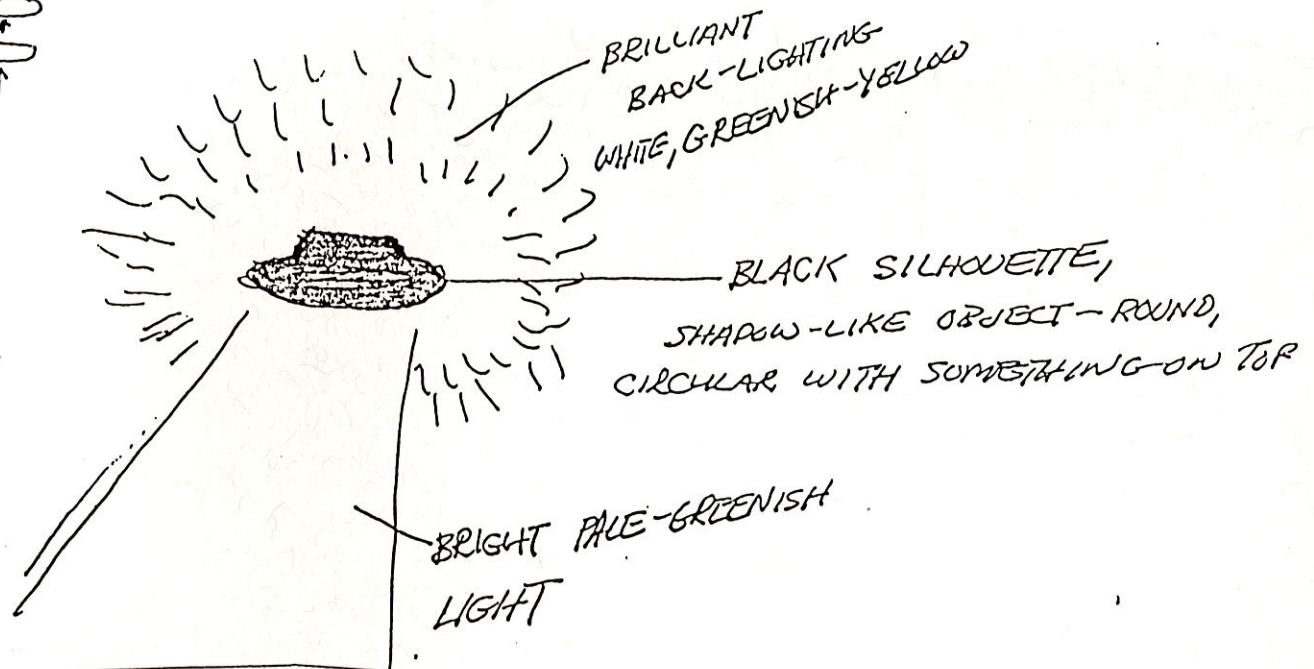 BRILLIANT
BACK-LIGHTING
WHITE, GREENISH-YELLOW
BLACK SILHOUETTE,
SHADOW-LIKE OBJECT - ROUND,
CIRCULAR WITH SOMETHING-ON TOP
BRIGHT PALE-GREENISH
LIGHT